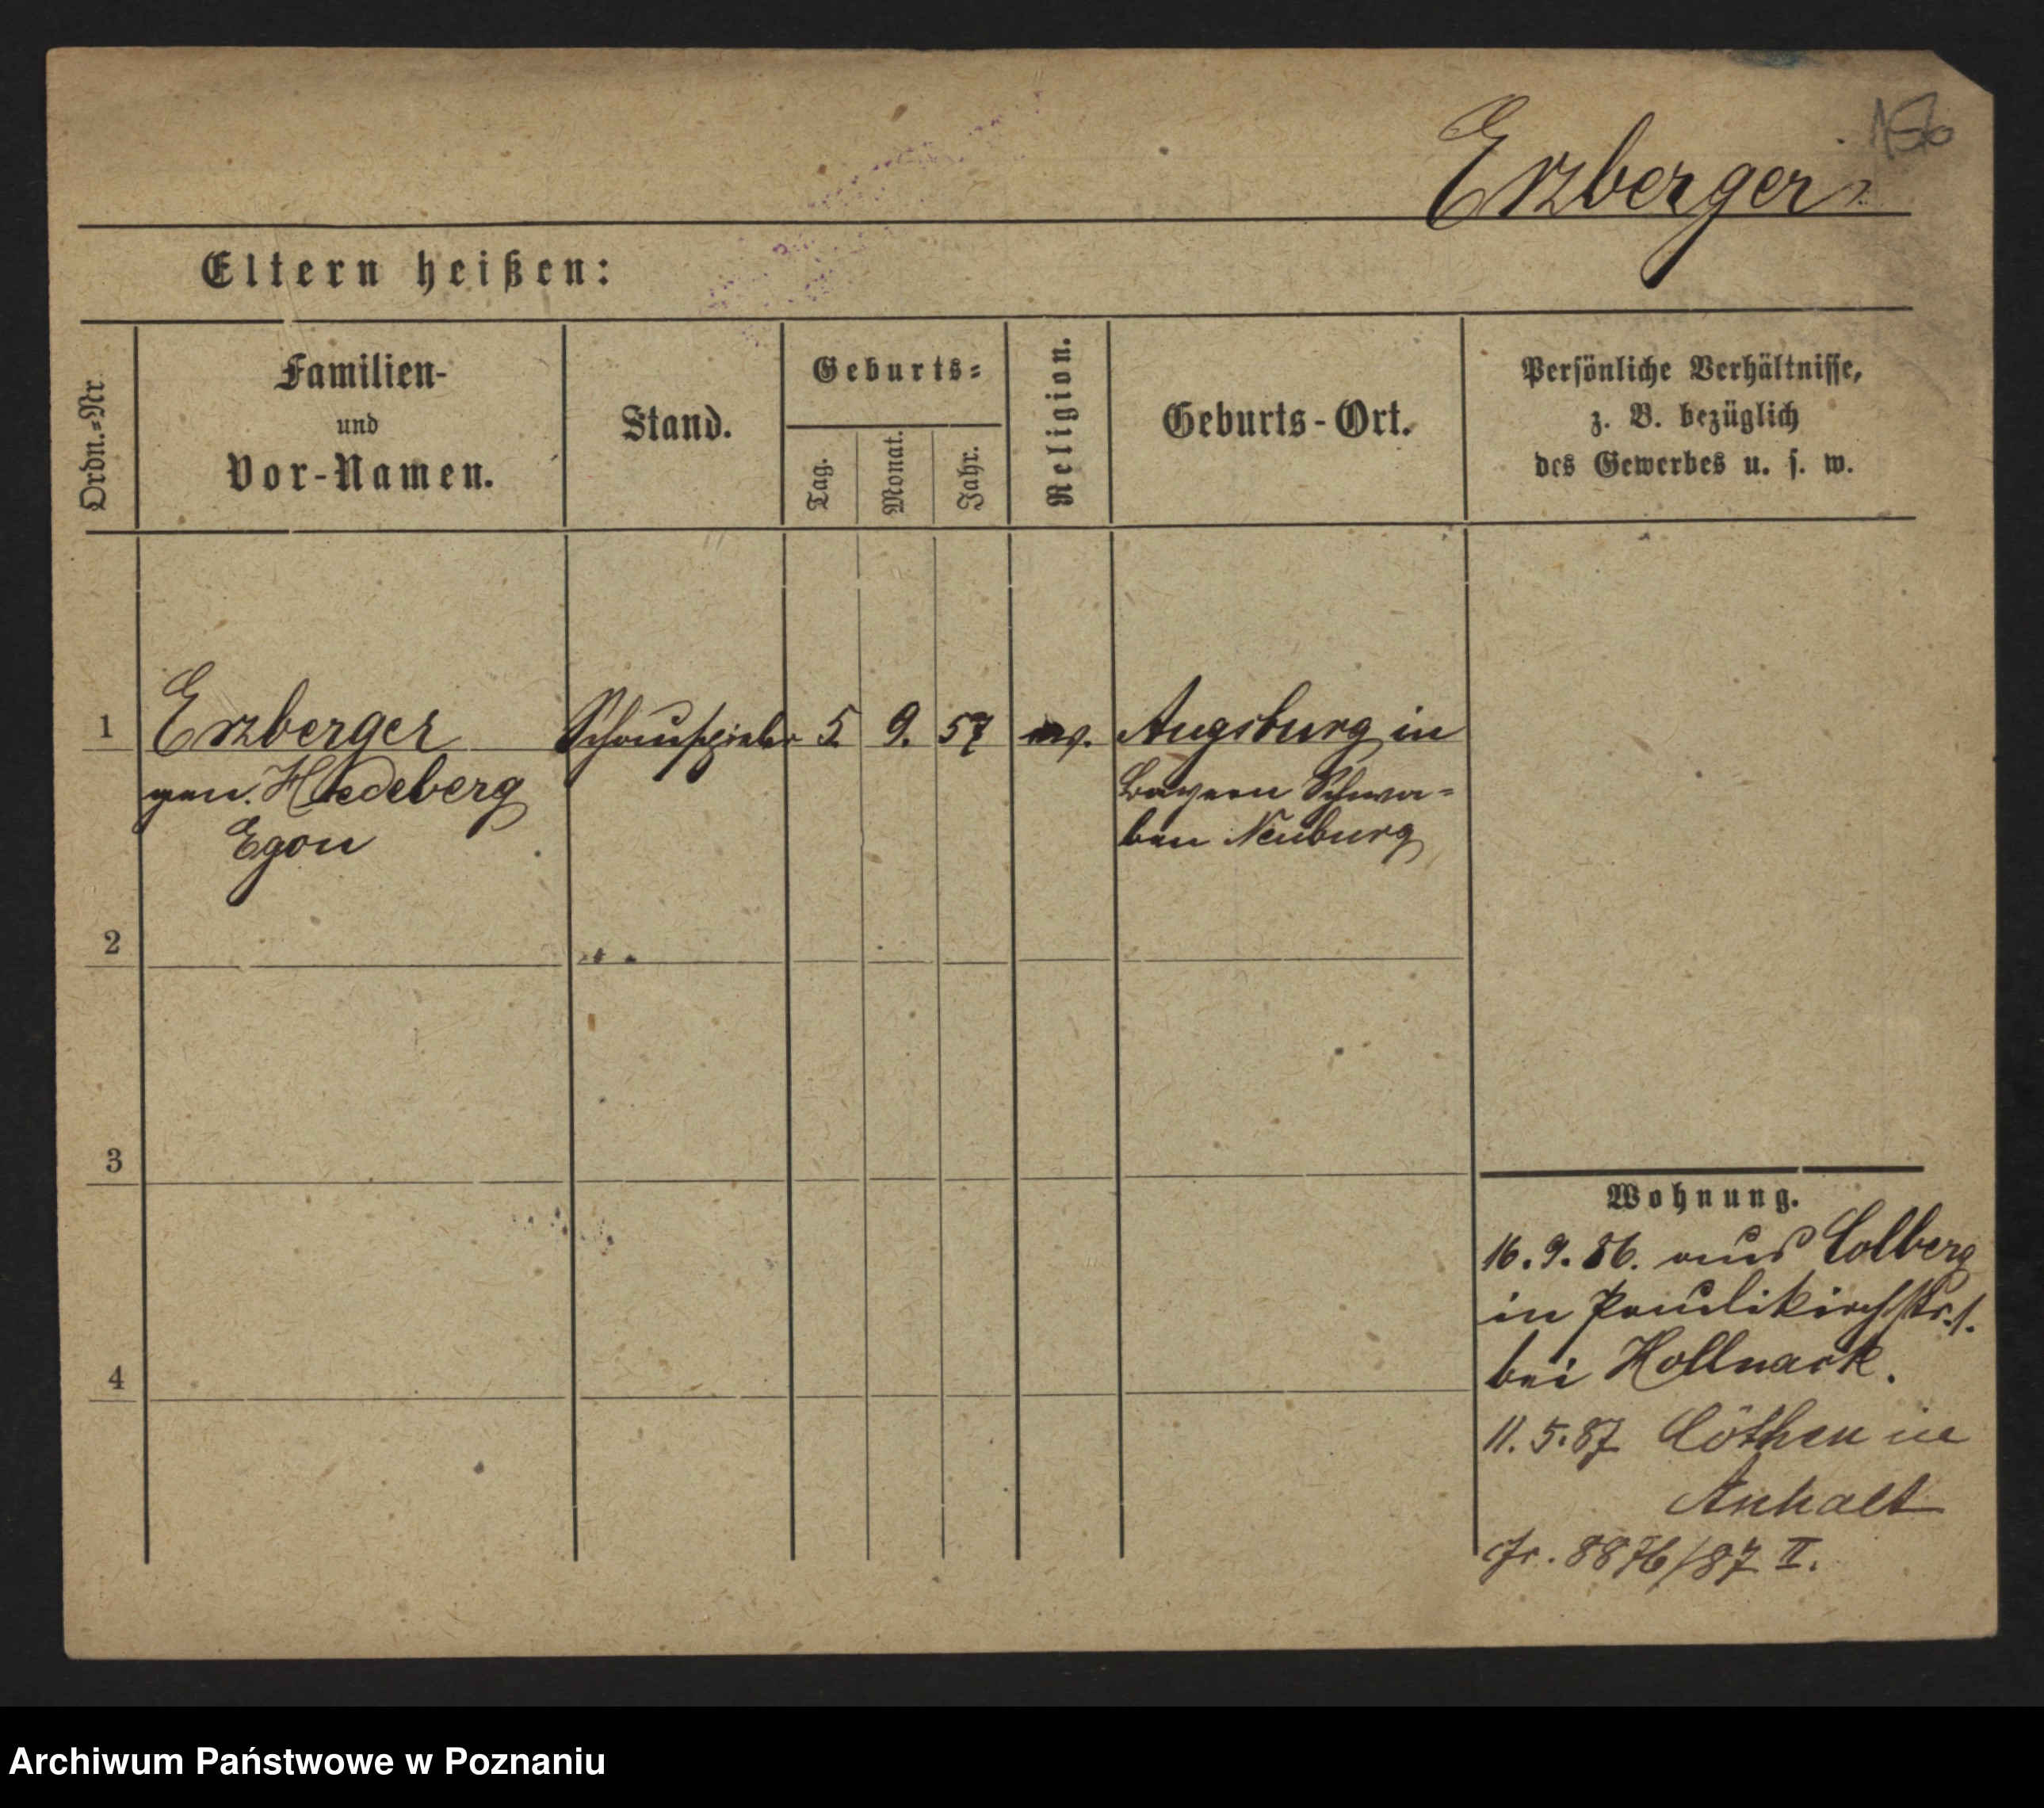 156
Erzberger
Eltern heißen:
Ordn.-Nr
Familien-
und
Vor-Namen.
Stand.
Geburts-
Tag.
Monat.
Jahr.
Religion.
Geburts-Ort.
Persönliche Verhältnisse,
z. B. bezüglich
des Gewerbes u. s. w.
1 Erzberger Schauspieler 5. 9. 57 Augsburg in
gen. Hedeberg Bayern Schwa=
Egon ben Neuburg
2
3
4
Wohnung.
16.9.86. aus Colberg
in Paulikirchstr. 1.
bei Hollnack.
11.5.87 Cöthen in
Anhalt
Jr. 8876/87 II.
Archiwum Państwowe w Poznaniu